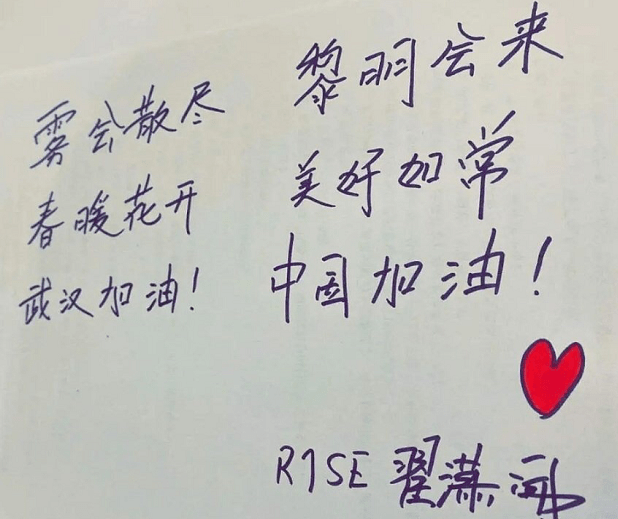 雾会散尽
春暖花开
武汉加油！
黎明会来
美好如常
中国加油！
R1SE 翟潇闻